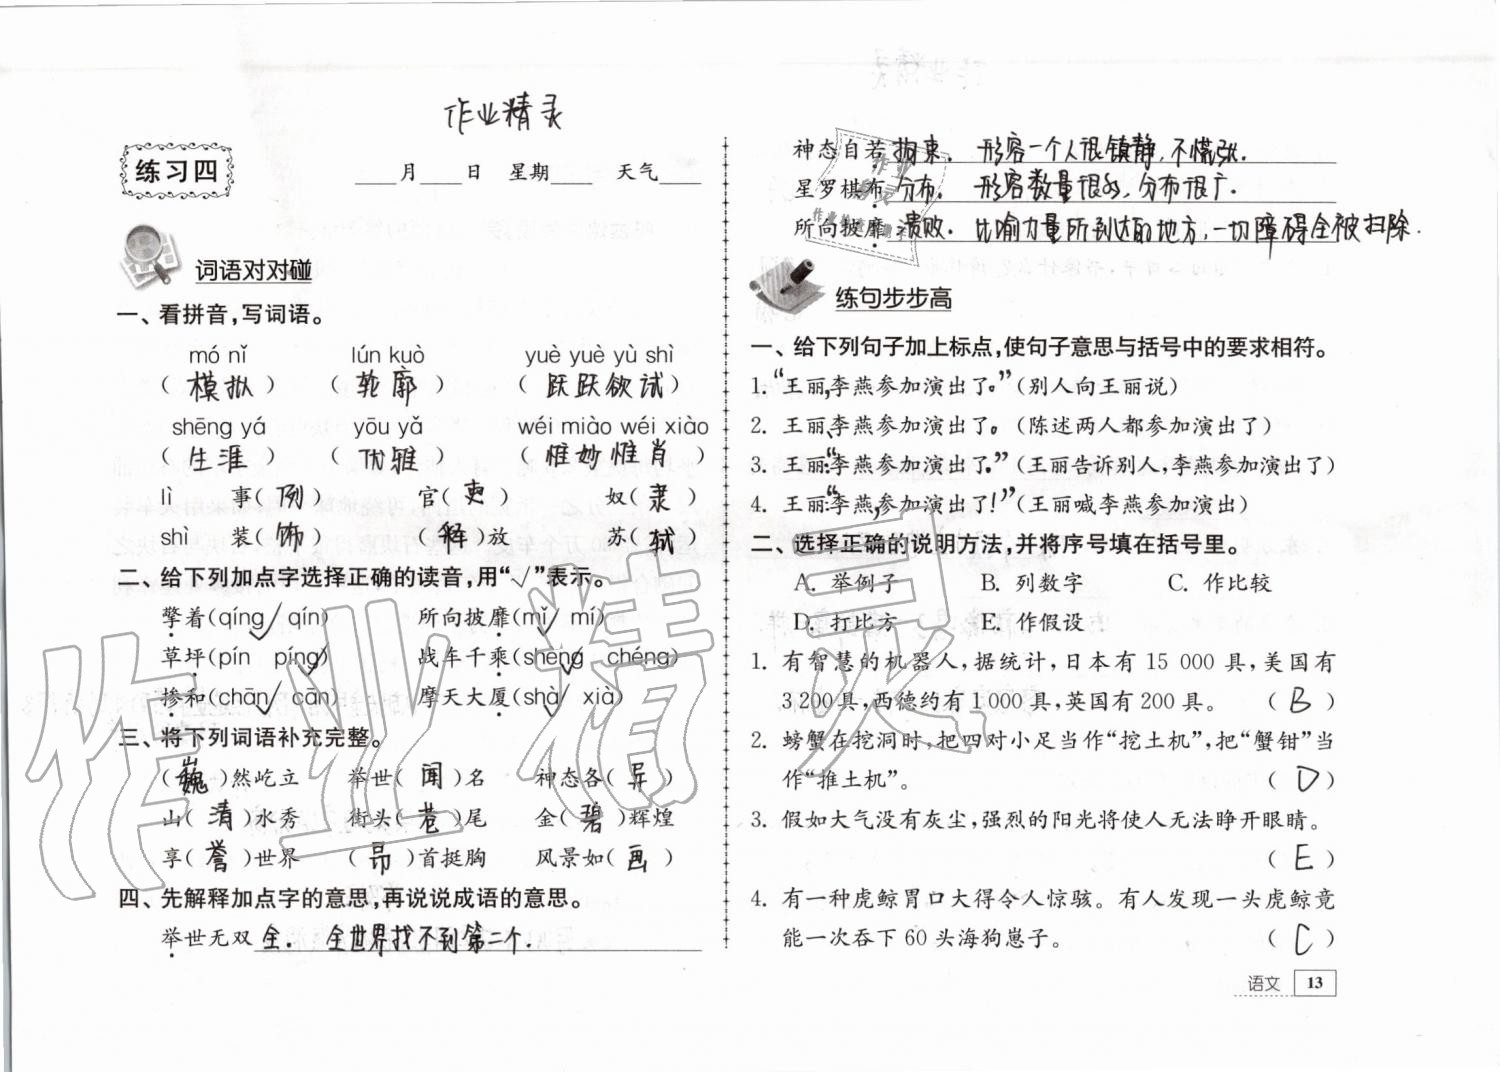 作业精灵
练习四
____月____日 星期____ 天气____
词语对对碰
一、看拼音,写词语。
mó nǐ lún kuò yuè yuè yù shì
(模拟) (轮廓) (跃跃欲试)
shēng yá yōu yǎ wéi miào wéi xiào
(生涯) (优雅) (惟妙惟肖)
lì 事(例) 官(吏) 奴(隶)
shì 装(饰) (释)放 苏(轼)
二、给下列加点字选择正确的读音,用“√”表示。
擎着(qíng√ qín) 所向披靡(mǐ√ mí)
草坪(pín píng√) 战车千乘(shèng√ chéng)
掺和(chān√ cān) 摩天大厦(shà√ xià)
三、将下列词语补充完整。
(巍)然屹立 举世(闻)名 神态各(异)
山(清)水秀 街头(巷)尾 金(碧)辉煌
享(誉)世界 (昂)首挺胸 风景如(画)
四、先解释加点字的意思,再说说成语的意思。
举世无双 全. 全世界找不到第二个.
神态自若 拘束. 形容一个人很镇静,不慌张.
星罗棋布 分布. 形容数量很多,分布很广.
所向披靡 溃败. 比喻力量所到达的地方,一切障碍全被扫除.
练句步步高
一、给下列句子加上标点,使句子意思与括号中的要求相符。
1. “王丽,李燕参加演出了。”(别人向王丽说)
2. 王丽、李燕参加演出了。(陈述两人都参加演出了)
3. 王丽:“李燕参加演出了。”(王丽告诉别人,李燕参加演出了)
4. 王丽:“李燕,参加演出了!”(王丽喊李燕参加演出)
二、选择正确的说明方法,并将序号填在括号里。
A. 举例子 B. 列数字 C. 作比较
D. 打比方 E. 作假设
1. 有智慧的机器人,据统计,日本有 15 000 具,美国有
3 200 具,西德约有 1 000 具,英国有 200 具。 (B)
2. 螃蟹在挖洞时,把四对小足当作“挖土机”,把“蟹钳”当
作“推土机”。 (D)
3. 假如大气没有灰尘,强烈的阳光将使人无法睁开眼睛。
(E)
4. 有一种虎鲸胃口大得令人惊骇。有人发现一头虎鲸竟
能一次吞下 60 头海狗崽子。 (C)
语文 13
作业精灵